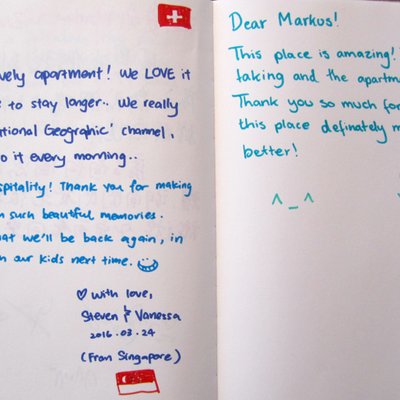 vely apartment! We LOVE it
to stay longer.. We really
ational Geographic' channel,
o it every morning..
spitality! Thank you for making
such beautiful memories.
at we'll be back again, in
our kids next time.
♡ with love,
Steven & Vanessa
2016.03.24
(From Singapore)
Dear Markus!
This place is amazing!
taking and the apartm
Thank you so much for
this place definately m
better!
^_^